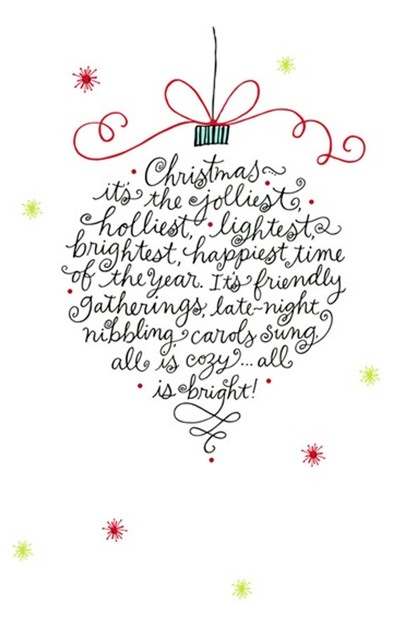 Christmas~
it's the jolliest,
holliest, lightest,
brightest, happiest time
of the year. It's friendly
gatherings, late-night
nibbling carols sung
all is cozy...all
is bright!